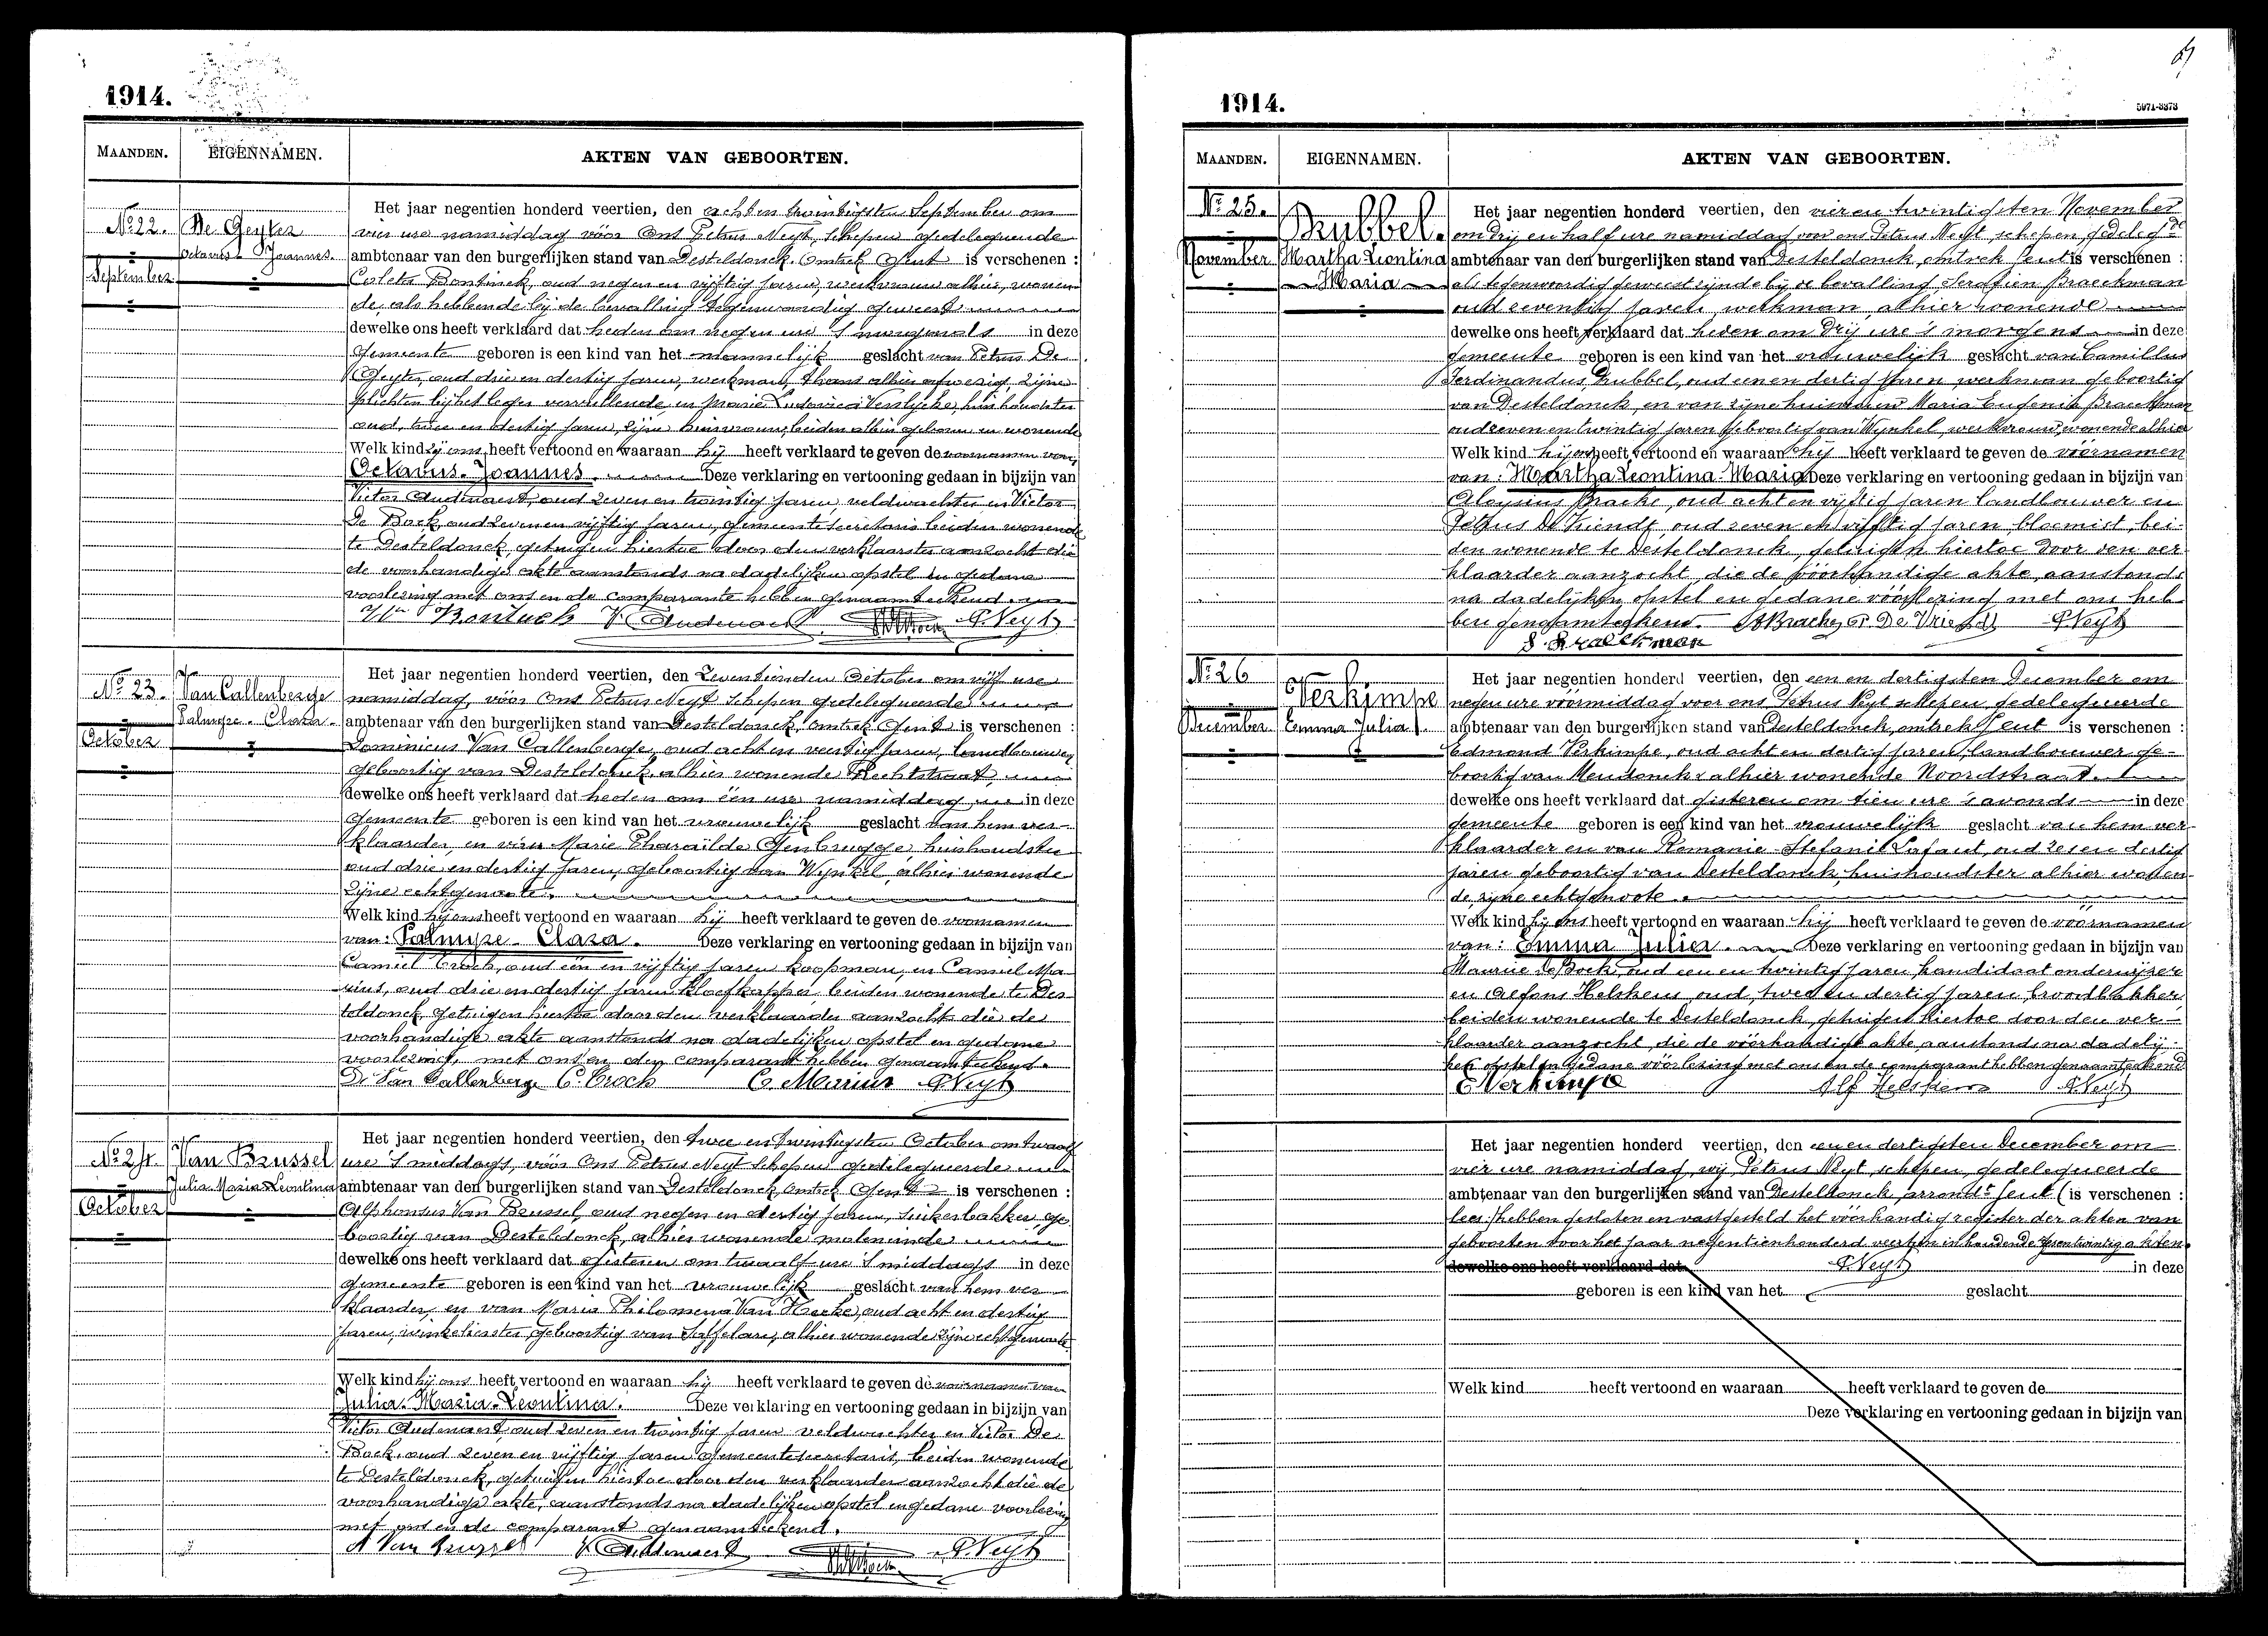 1914.
MAANDEN. EIGENNAMEN. AKTEN VAN GEBOORTEN.
Nº 22. De Geyter
Octavus Joannes.
September
Het jaar negentien honderd veertien, den acht en twintigsten September om
vier ure namiddag vóór Ons Petrus Neyt, schepen gedelegueerde
ambtenaar van den burgerlijken stand van Desteldonck, omtrek Gent is verschenen :
Coleta Bontinck, oud negen en vijftig jaren, werkvrouw alhier, wonen-
de, als hebbende bij de bevalling tegenwoordig geweest
dewelke ons heeft verklaard dat heden om negen ure 's morgends in deze
Gemeente geboren is een kind van het mannelijk geslacht van Petrus De
Geyter, oud drie en dertig jaren, werkman, thans alhier afwezig, zijne
plichten bij het leger vervullende, en Marie Ludovica Verslycke huishoudster
oud, twee en dertig jaren, zijne huisvrouw, beiden alhier geboren en wonende
Welk kind zij ons heeft vertoond en waaraan zij heeft verklaard te geven de voornamen van
Octavus-Joannes. Deze verklaring en vertooning gedaan in bijzijn van
Victor Audenaert, oud zeven en twintig jaren, veldwachter en Victor
De Bock, oud zeven en vijftig jaren, gemeentesecretaris beiden wonende
te Desteldonck, getuigen hiertoe door den verklaarster aanzocht die
de voorhandige akte aanstonds na dadelijken opstel en gedane
voorlezing met ons en de comparante hebben genaamteekend.
Bontinck V. Audenaert P. Neyt
Nº 23. Van Callenberge
Palmyre-Clara.
October
Het jaar negentien honderd veertien, den Zeventienden October om vijf ure
namiddag, vóór Ons Petrus Neyt Schepen gedelegueerde
ambtenaar van den burgerlijken stand van Desteldonck, omtrek Gent is verschenen :
Dominicus Van Callenberge, oud acht en veertig jaren, landbouwer,
geboortig van Desteldonck, alhier wonende Rechtstraat,
dewelke ons heeft verklaard dat heden om één ure namiddag in deze
Gemeente geboren is een kind van het vrouwelijk geslacht van hem ver-
klaarder, en van Marie Pharaïlde Genbrugge huishoudster
oud drie en dertig jaren, geboortig van Wynkel, alhier wonende
zijne echtgenoote.
Welk kind hij ons heeft vertoond en waaraan hij heeft verklaard te geven de voornamen
van: Palmyre-Clara. Deze verklaring en vertooning gedaan in bijzijn van
Camiel Crock, oud één en vijftig jaren koopman, en Camiel Ma-
rius, oud drie en dertig jaren kloefkapper, beiden wonende te Des-
teldonck, getuigen hiertoe door den verklaarder aanzocht die de
voorhandige akte aanstonds na dadelijken opstel en gedane
voorlezing, met ons en den comparant hebben genaamteekend.
D. Van Callenberge C. Crock C. Marius P. Neyt
Nº 24. Van Brussel
Julia Maria Leontina
October
Het jaar negentien honderd veertien, den twee en twintigsten October om twaalf
ure 's middags, vóór Ons Petrus Neyt Schepen gedelegueerde
ambtenaar van den burgerlijken stand van Desteldonck, omtrek Gent is verschenen :
Alphonsus Van Brussel, oud negen en dertig jaren, suikerbakker ge-
boortig van Desteldonck, alhier wonende moleneinde
dewelke ons heeft verklaard dat Gisteren om twaalf ure 's middags in deze
Gemeente geboren is een kind van het vrouwelijk geslacht van hem ver-
klaarder, en van Maria Philomena Van Hecke, oud acht en dertig
jaren, winkelierster, geboortig van Saffelare, alhier wonende zijne echtgenoote.
Welk kind hij ons heeft vertoond en waaraan hij heeft verklaard te geven de voornamen van
Julia-Maria-Leontina. Deze verklaring en vertooning gedaan in bijzijn van
Victor Audenaert, oud zeven en twintig jaren veldwachter en Victor De
Bock, oud zeven en vijftig jaren Gemeentesecretaris, beiden wonende
te Desteldonck, getuigen hiertoe door den verklaarder aanzocht die de
voorhandige akte, aanstonds na dadelijken opstel en gedane voorlezing
met ons en de comparant genaamteekend.
A Van Brussel V. Audenaert P. Neyt
1914. 5971-3373
MAANDEN. EIGENNAMEN. AKTEN VAN GEBOORTEN.
Nº 25. Bubbel.
November Martha Leontina
Maria
Het jaar negentien honderd veertien, den vier en twintigsten November
om drij en half ure namiddag voor ons Petrus Neyt, schepen, gedelegde
ambtenaar van den burgerlijken stand van Desteldonck, omtrek Gent is verschenen :
als tegenwoordig geweest zijnde bij de bevalling Serafien Braeckman
oud zeventig jaren, werkman, alhier wonende
dewelke ons heeft verklaard dat heden om drij ure 's morgens in deze
gemeente geboren is een kind van het vrouwelijk geslacht van Camillus
Ferdinandus Bubbel, oud een en dertig jaren werkman geboortig
van Desteldonck, en van zijne huisvrouw Maria Eugenia Braeckman
oud zeven en twintig jaren geboortig van Wynkel, werkvrouw, wonende alhier
Welk kind hij ons heeft vertoond en waaraan hij heeft verklaard te geven de vóórnamen
van: Martha-Leontina-Maria Deze verklaring en vertooning gedaan in bijzijn van
Aloysius Bracke, oud acht en vijftig jaren landbouwer en
Petrus De Vriendt, oud zeven en vijftig jaren, bloemist, bei-
den wonende te Desteldonck, getuigen hiertoe door den ver-
klaarder aanzocht, die de vóórhandige akte, aanstonds
na dadelijken opstel en gedane vóórlezing met ons heb-
ben genaamteekend. Bracke P. De Vriendt P. Neyt
S. Braeckman
Nº 26 Verkimpe
December Emma Julia.
Het jaar negentien honderd veertien, den een en dertigsten December om
negen ure vóórmiddag voor ons Petrus Neyt schepen, gedelegueerde
ambtenaar van den burgerlijken stand van Desteldonck, omtrek Gent is verschenen :
Edmond Verkimpe, oud acht en dertig jaren, landbouwer ge-
boortig van Mendonck, alhier wonende Noordstraat.
dewelke ons heeft verklaard dat gisteren om tien ure 's avonds in deze
gemeente geboren is een kind van het vrouwelijk geslacht van hem ver-
klaarder en van Romanie Stefanie Lafaut, oud zes en dertig
jaren geboortig van Desteldonck, huishoudster alhier wonen-
de, zijne echtgenoote.
Welk kind hij ons heeft vertoond en waaraan hij heeft verklaard te geven de vóórnamen
van: Emma Julia. Deze verklaring en vertooning gedaan in bijzijn van
Maurice De Bock, oud een en twintig jaren kandidaat onderwijzer
en Alfons Helskens, oud, twee en dertig jaren, broodbakker
beiden wonende te Desteldonck, getuigen hiertoe door den ver-
klaarder aanzocht, die de vóórhandige akte, aanstonds na dadelij-
ken opstel en gedane vóórlezing met ons en de comparant hebben genaamteekend
E Verkimpe Alf Helskens P. Neyt
Het jaar negentien honderd veertien, den een en dertigsten December om
vier ure namiddag, wij, Petrus Neyt, schepen, gedelegueerde
ambtenaar van den burgerlijken stand van Desteldonck, arrondt Gent ( is verschenen :
lees:) hebben gesloten en vastgesteld het vóórhandig register der akten van
geboorten voor het jaar negentienhonderd veertien inhoudende zesentwintig akten.
dewelke ons heeft verklaard dat P. Neyt in deze
geboren is een kind van het geslacht
Welk kind heeft vertoond en waaraan heeft verklaard te geven de
Deze verklaring en vertooning gedaan in bijzijn van